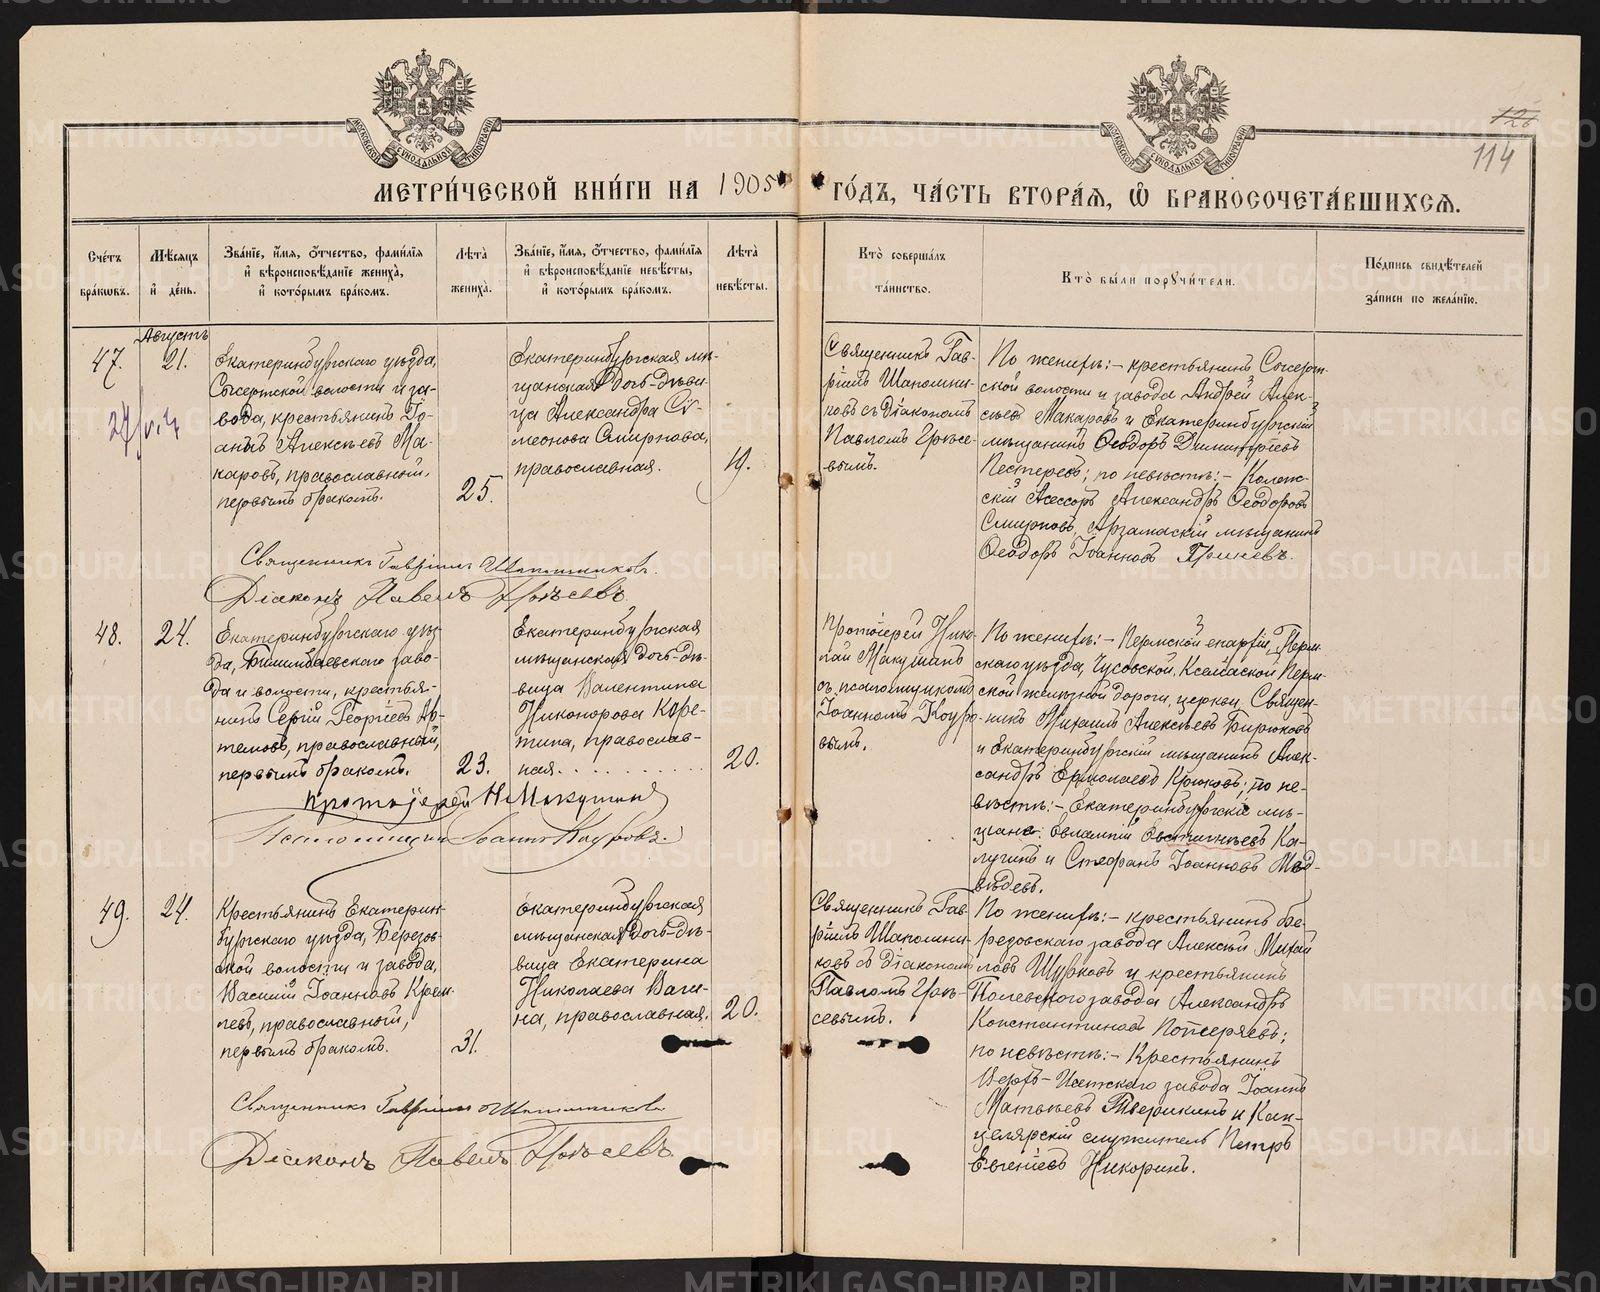 126
114
МЕТРИ́ЧЕСКОЙ КНИ́ГИ НА 1905 ГО́ДЪ, ЧА́СТЬ ВТОРА́Я, Ѡ БРАКОСОЧЕТА́ВШИХСЯ.
Сче́тъ бра́кωвъ.
Мѣ́сяцъ и де́нь.
Зва́нїе, и́мя, о́тчество, фами́лїя и вѣроисповѣ́данїе жениха̀, и кото́рымъ бра́комъ.
Лѣ́та жениха̀.
Зва́нїе, и́мя, о́тчество, фами́лїя и вѣроисповѣ́данїе невѣ́сты, и кото́рымъ бра́комъ.
Лѣ́та невѣ́сты.
Кто̀ соверша́лъ та́инство.
Кто̀ бы́ли порꙋчи́тели.
По́дпись свидѣ́телей за́писи по жела́нїю.
47.
Августъ
21.
Екатеринбургскаго уѣзда,
Сысертской волости и за-
вода, крестьянинъ Іо-
аннъ Алексѣевъ Ма-
каровъ, православный,
первымъ бракомъ.
25.
Екатеринбургская мѣ-
щанская дочь-дѣви-
ца Александра Си-
меонова Смирнова,
православная.
19.
Священникъ Гав-
ріилъ Шапошни-
ковъ съ діакономъ
Павломъ Грѣсе-
вымъ.
По женихѣ:- крестьянинъ Сысерт-
ской волости и завода Андрей Алек-
сѣевъ Макаровъ и Екатеринбургскій
мѣщанинъ Ѳеодоръ Димитріевъ
Пестеревъ; по невѣстѣ:- Коллеж-
скій Ассесоръ Александръ Ѳеодоровъ
Смирновъ, Арзамасскій мѣщанинъ
Ѳеодоръ Іоанновъ
Священникъ Гавріилъ Шапошниковъ.
Діаконъ Павелъ Грѣсевъ
48.
24.
Екатеринбургскаго уѣз-
да, Билимбаевскаго заво-
да и волости, крестья-
нинъ Сергій Георгіевъ Ар-
темовъ, православный,
первымъ бракомъ.
23.
Екатеринбургская
мѣщанская дочь-дѣ-
вица Валентина
Никонорова Коре-
тина, православ-
ная.
20.
Протоіерей Нико-
лай Макушинъ
съ псаломщикомъ
Іоанномъ Коуро-
вымъ.
По женихѣ:- Пермской епархіи, Перм-
скаго уѣзда, Чусовской, Перм-
ской желѣзной дороги, церкви, Священ-
никъ Михаилъ Алексѣевъ Бирюковъ
и Екатеринбургскій мѣщанинъ Алек-
сандръ Ермолаевъ Крюковъ; по не-
вѣстѣ:- Екатеринбургскіе мѣ-
щане: Евлампій Евстигнѣевъ Ка-
лугинъ и Стефанъ Іоанновъ Мед-
вѣдевъ.
Протоіерей Н. Макушинъ
Псаломщикъ Іоаннъ Коуровъ.
49.
24.
Крестьянинъ Екатерин-
бургскаго уѣзда, Березов-
ской волости и завода,
Василій Іоанновъ Крем-
левъ, православный,
первымъ бракомъ.
31.
Екатеринбургская
мѣщанская дочь-дѣ-
вица Екатерина
Николаева Ваги-
на, православная.
20.
Священникъ Гав-
ріилъ Шапошни-
ковъ съ діакономъ
Павломъ Грѣ-
севымъ.
По женихѣ:- крестьянинъ Бе-
резовскаго завода Алексѣй Михай-
ловъ Шурковъ и крестьянинъ
Полевскаго завода Александръ
Константиновъ
по невѣстѣ:- Крестьянинъ
Верхъ-Исетскаго завода Іоаннъ
Матвѣевъ Тверикинъ и Кан-
целярскій служитель Петръ
Евгеніевъ Никоринъ.
Священникъ Гавріилъ Шапошниковъ
Діаконъ Павелъ Грѣсевъ
METRIKI.GASO-URAL.RU